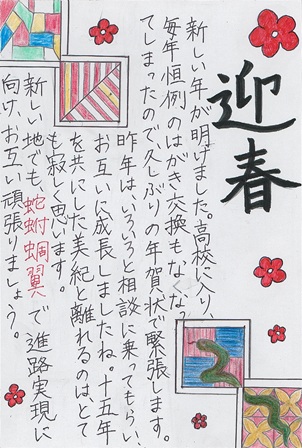 迎春
新しい年が明けました。高校に入り、
毎年恒例のはがき交換もなくなっ
てしまったので久しぶりの年賀状で緊張します。
昨年は、いろいろと相談に乗ってもらい、
お互いに成長しましたね。十五年
を共にした美紀と離れるのはとて
も寂しく思います。
新しい地でも、蛇蚹蜩翼で進路実現に
向け、お互い頑張りましょう。